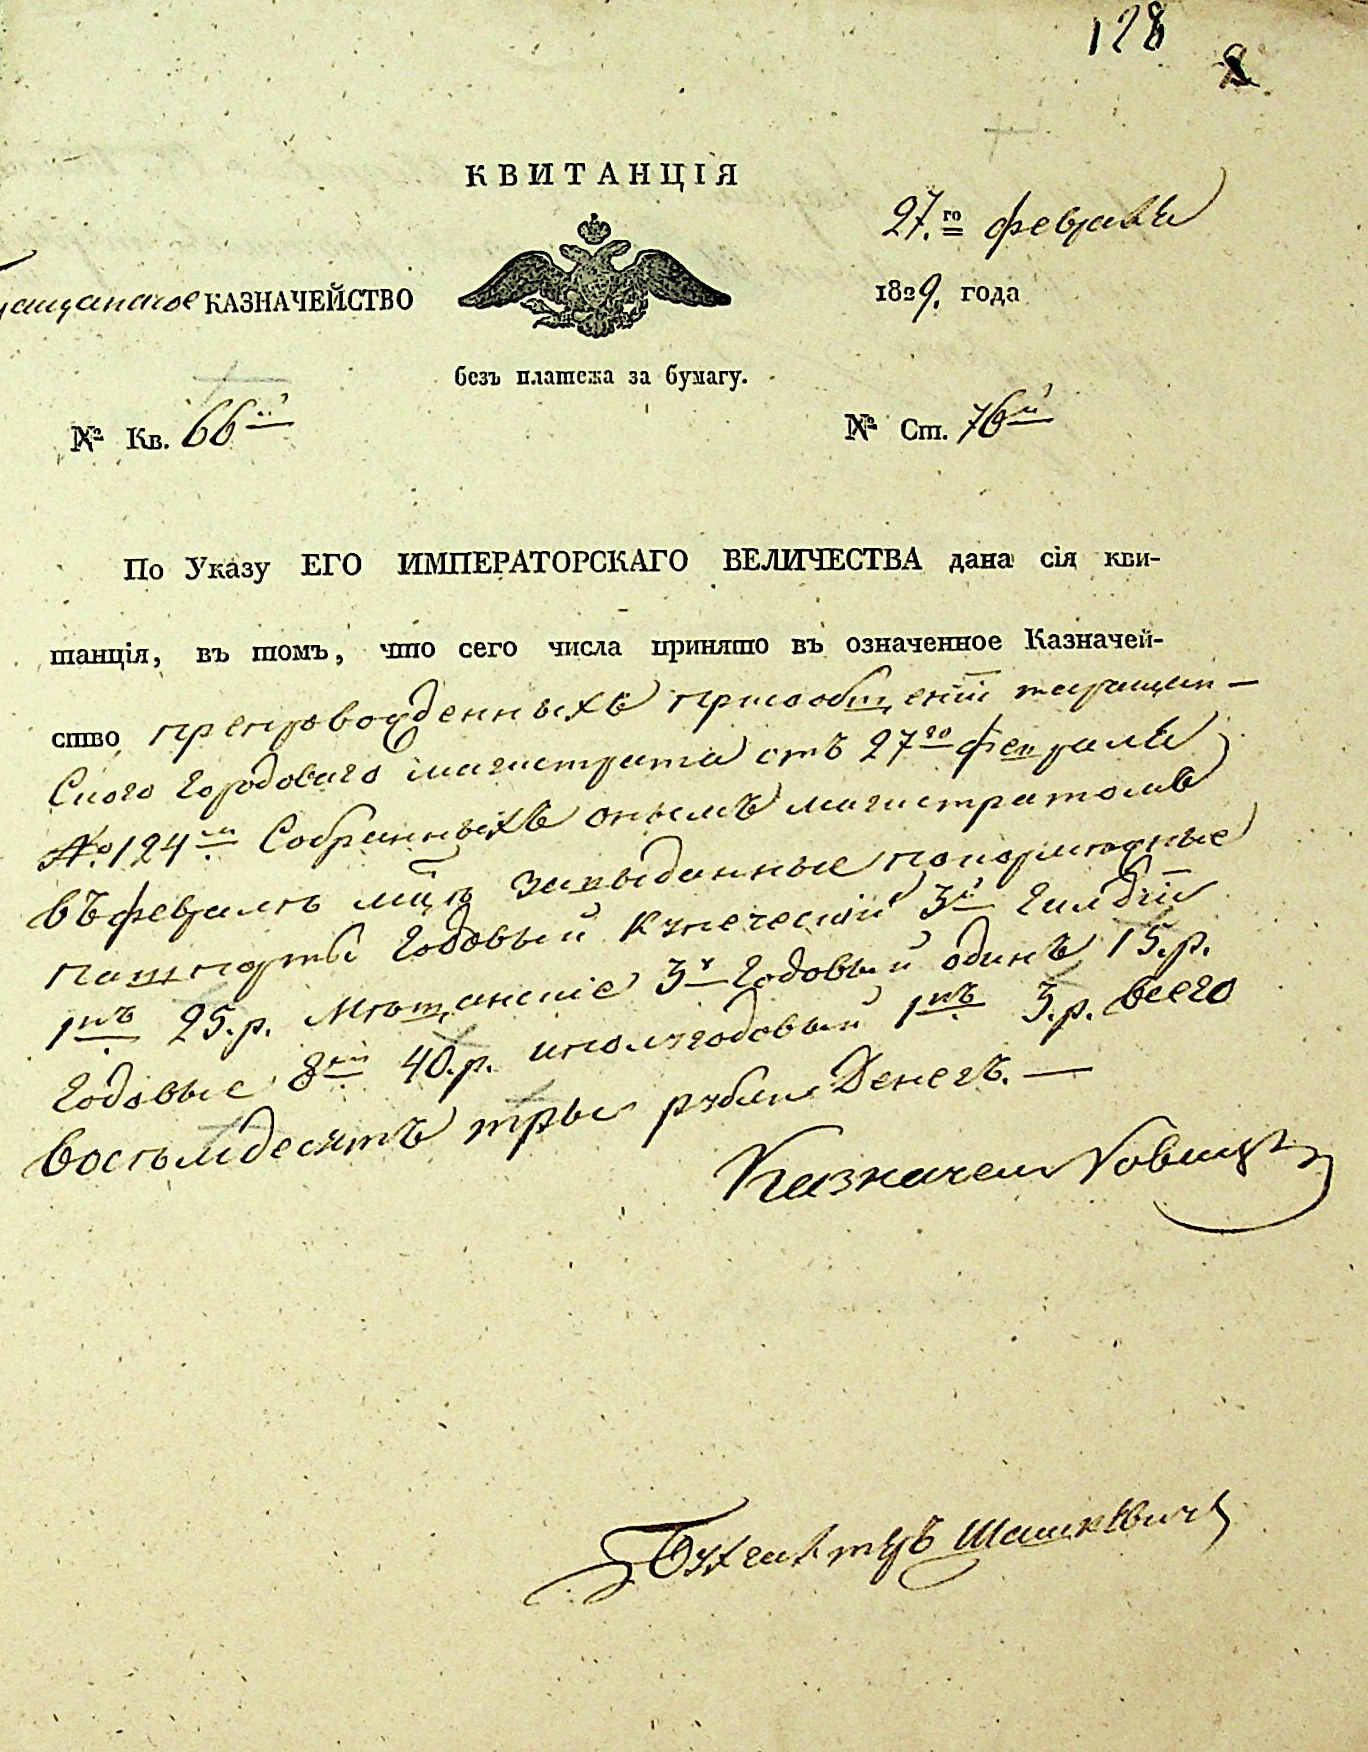 128
КВИТАНЦІЯ
27.го февраля
Таращанское КАЗНАЧЕЙСТВО
1829. года
безъ платежа за бумагу.
№ Кв. 66й
№ Ст. 76й
По Указу ЕГО ИМПЕРАТОРСКАГО ВЕЛИЧЕСТВА дана сія кви-
танція, въ томъ, что сего числа принято въ означенное Казначей-
ство препровожденныхъ присообщеніи таращан-
Ского Городоваго магистрата отъ 27го февраля
№ 124м Собранныхъ онымъ магистратомъ
въ февралѣ мцѣ завыданные покормежные
пашпорты Годовый купеческій 3й Гилдіи
1нъ 25.р. Мѣщанскіе 3х Годовый одинъ 15.р.
Годовые 8м 40.р. иполугодовый 1нъ 3.р. Всего
восѣмдесятъ тры рубли Денегъ. —
Казначей
Бухгалтеръ Шашкевичъ